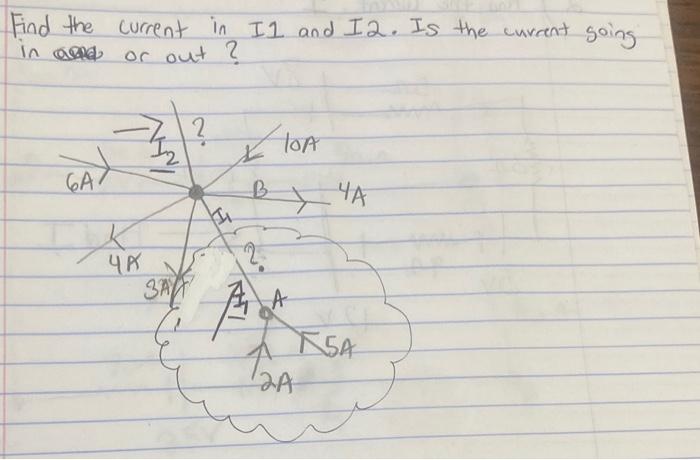 Find the current in I1 and I2. Is the current going
in or out ?
?
I2
10A
6A
B
4A
I1
4A
?
3A
I1
A
5A
2A